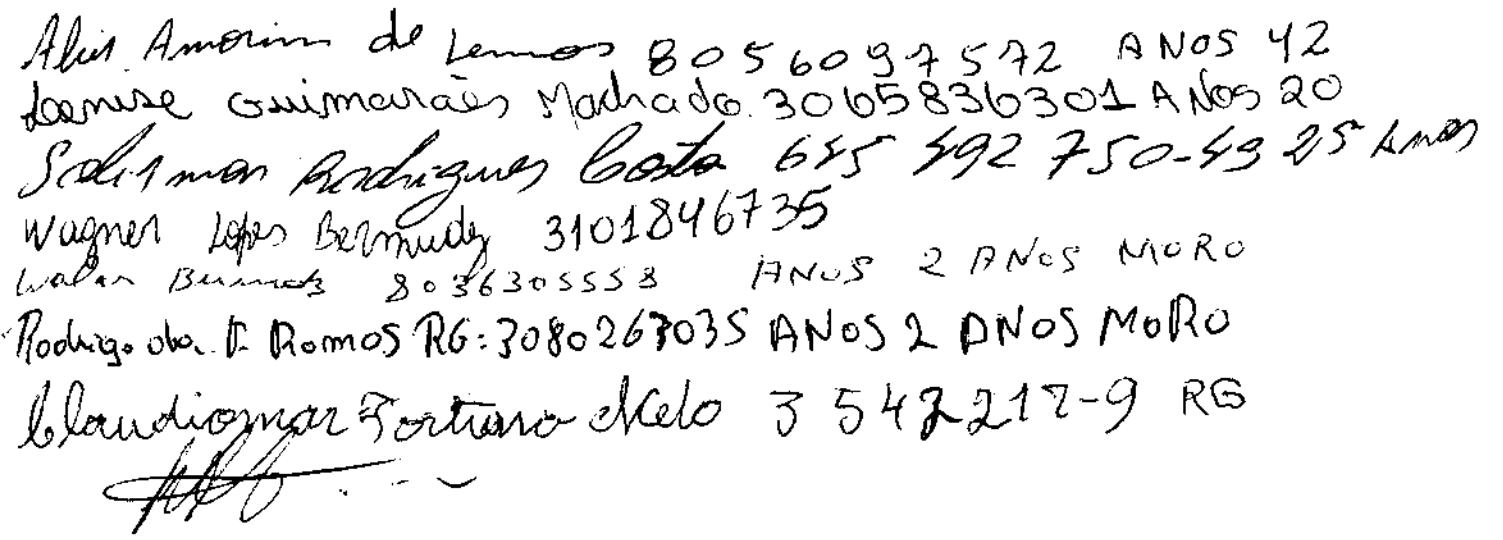 Amorim de Lemos 8056097572 ANOS 42
Denise Guimarães Machado 3065836301 ANOS 20
Rodrigues Costa 645 492 750-49 25 Anos
Wagner Lopes Bermudez 3101846735
8036305558 ANOS 2 ANOS MORO
Rodrigo da. F. Ramos RG: 3080263035 ANOS 2 ANOS MORO
Claudiomar Melo 3 542217-9 RG